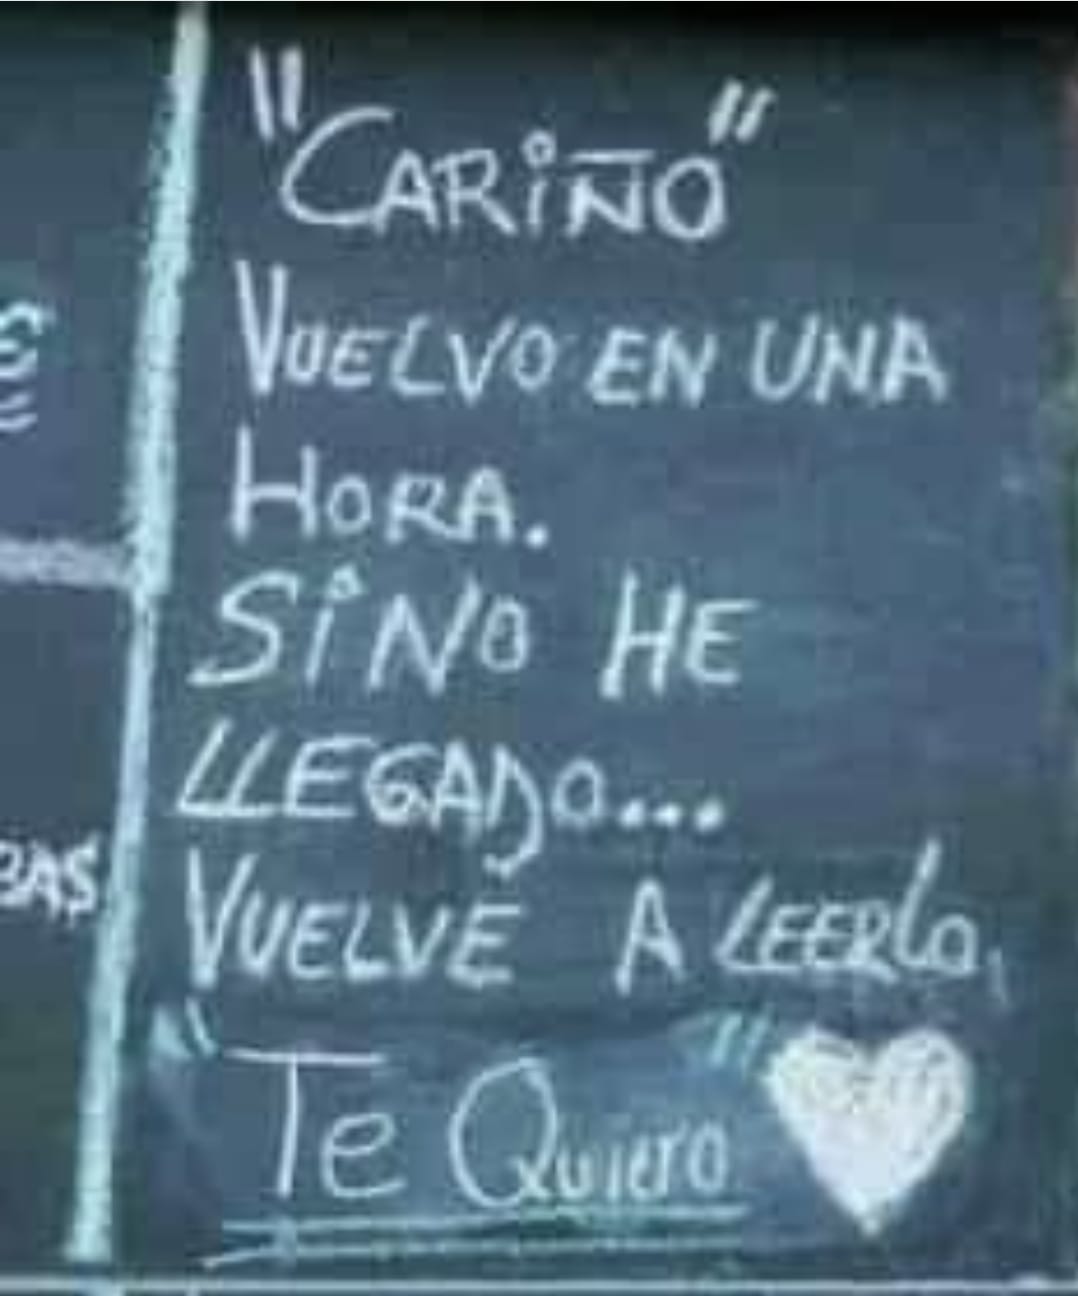 "CARIÑO"
VUELVO EN UNA
HORA.
SINO HE
LLEGADO...
VUELVE A LEERLO,
"Te Quiero"
BAS